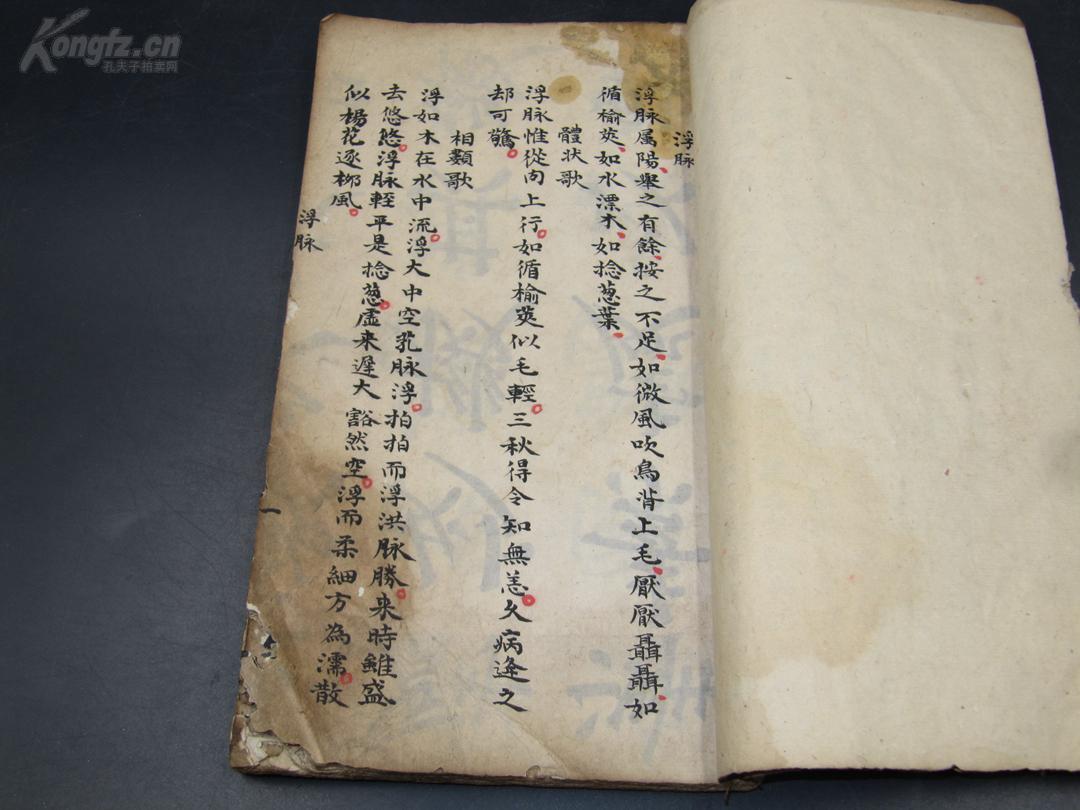 Kongfz.cn
孔夫子拍卖网
浮脉
浮脉属陽、舉之有餘、按之不足、如微風吹鳥背上毛、厭厭聶聶、如
循榆莢、如水漂木、如捻葱葉、
體状歌
浮脉惟從肉上行。如循榆莢似毛輕。三秋得令知無恙。久病逢之
却可驚。
相類歌
浮如木在水中流。浮大中空芤脉浮。拍拍而浮洪脉勝。来時雖盛
去悠悠。浮脉輕平是捻葱。虛来遲大豁然空。浮而柔細方為濡。散
似楊花逐柳風。
浮脉
一